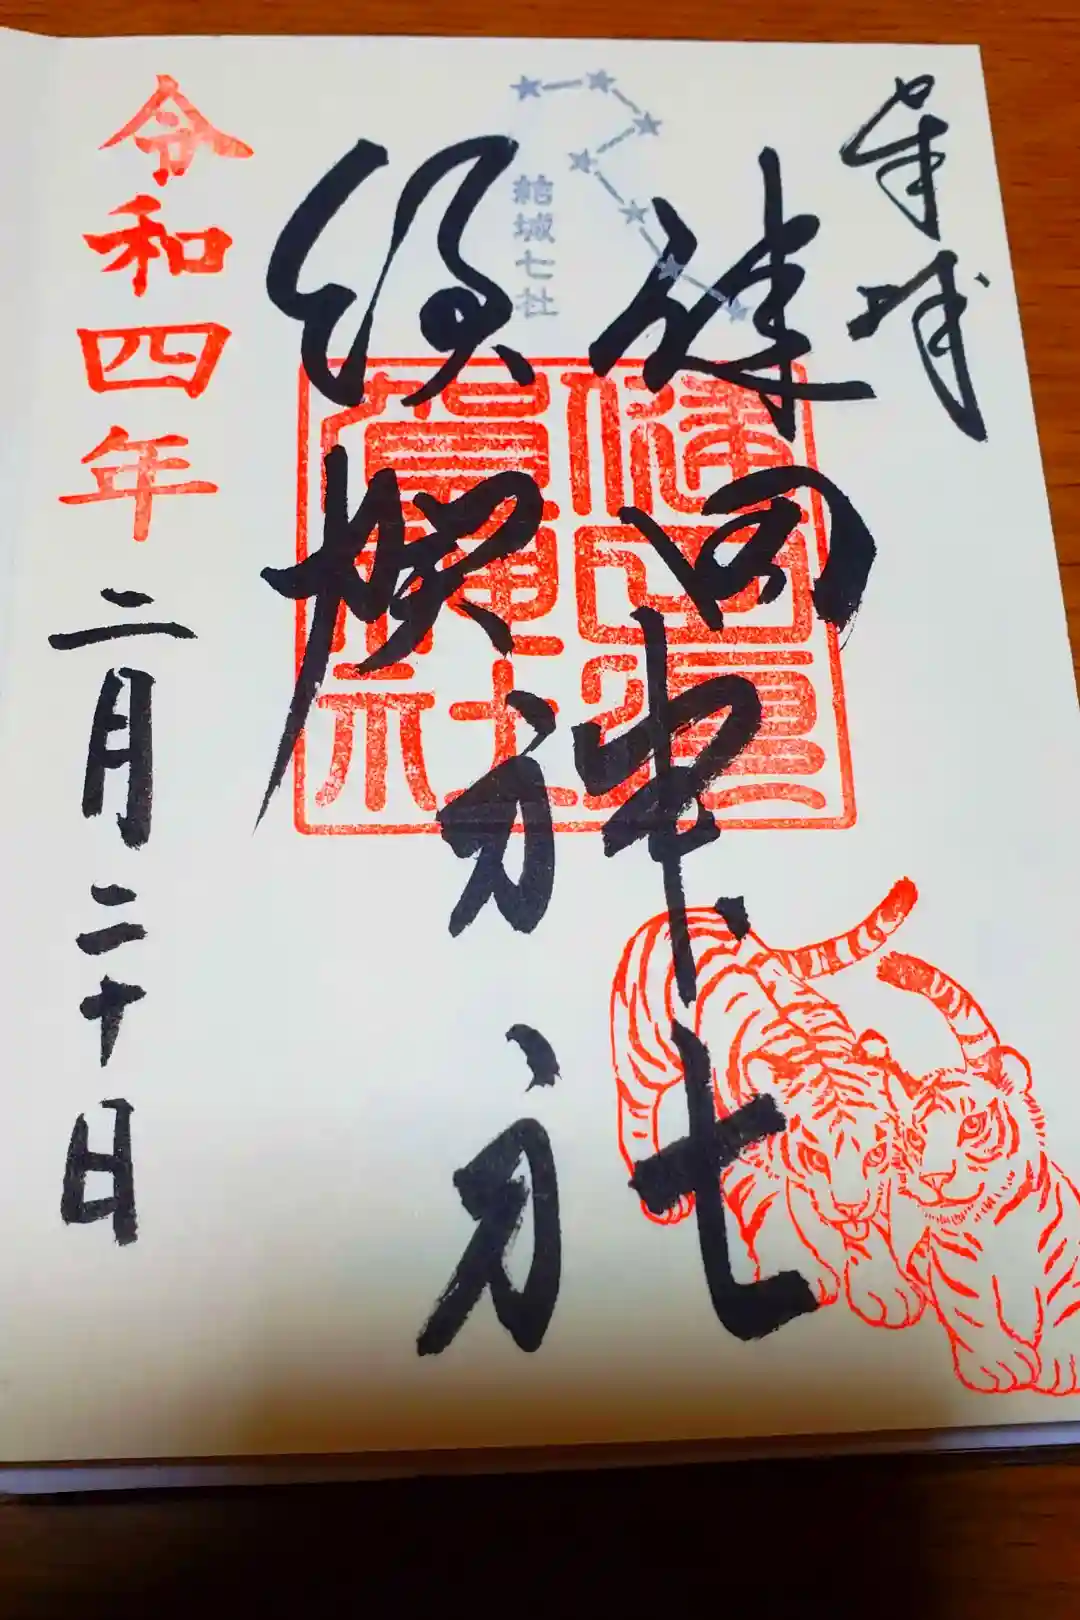 奉拝
結城七社
健田神社
須賀
健田須
賀神社
令和四年
二月二十日